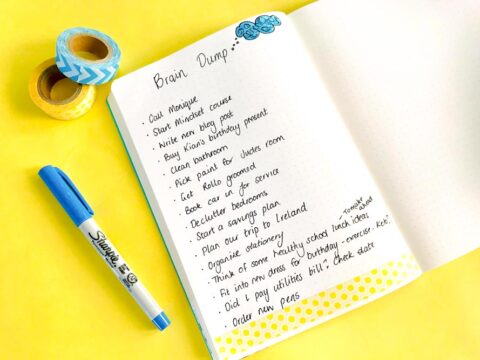 Brain Dump
· Call Monique
· Start Mindset course
· Write new blog post
· Buy Kian's birthday present
· Clean bathroom
· Pick paint for Judes room
· Get Rollo groomed
· Book car in for service
· Declutter bedrooms
· Start a savings plan
· Plan our trip to Ireland
· Organise stationery
· Think of some healthy school lunch ideas
ahead
· Fit into new dress for birthday - exercise.
· Did I pay utilities bill? Check state
· Order new pens
Sharpie